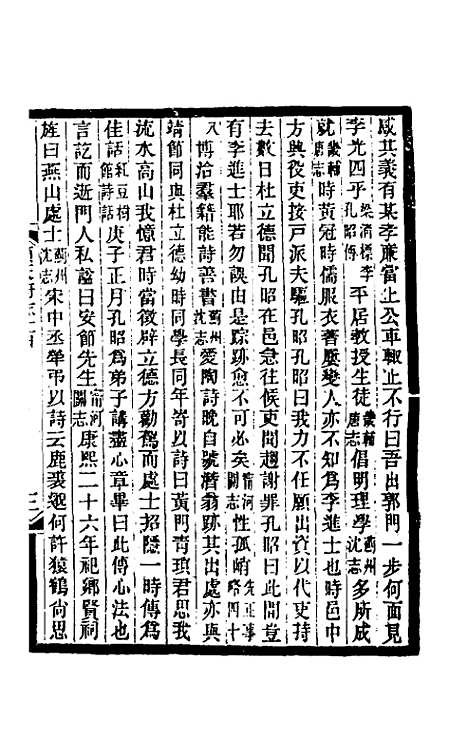 感其義有某孝廉當上公車輒止不行曰吾出郭門一步何面見
李光四乎梁清標李孔昭傳平居教授生徒畿輔唐志倡明理學薊州沈志多所成
就畿輔唐志時黃冠時儒服衣著屢變人亦不知為李進士也時邑中
方興役吏按戶派夫驅孔昭孔昭曰我力不任願出資以代吏持
去數日杜立德聞孔昭在邑急往候吏聞趨謝罪孔昭曰此間豈
有李進士耶若勿誤自是踪跡愈不可必矣甯河關志性孤峭先正事略四十
八博洽羣籍能詩善書薊州沈志愛陶詩晚自號潛翁跡其出處亦與
靖節同與杜立德幼時同學長同年寄以詩曰黃門青瑣君思我
流水高山我憶君時當徵辟立德方勸駕而處士招隱一時傳為
佳話紅豆樹館詩話庚子正月孔昭為弟子講盡心章畢曰此傳心法也
言訖而逝門人私諡曰安節先生甯河關志康熙二十六年祀鄉賢祠
旌曰燕山處士薊州沈志宋中丞犖弔以詩云鹿裘趣何許猿鶴尙思